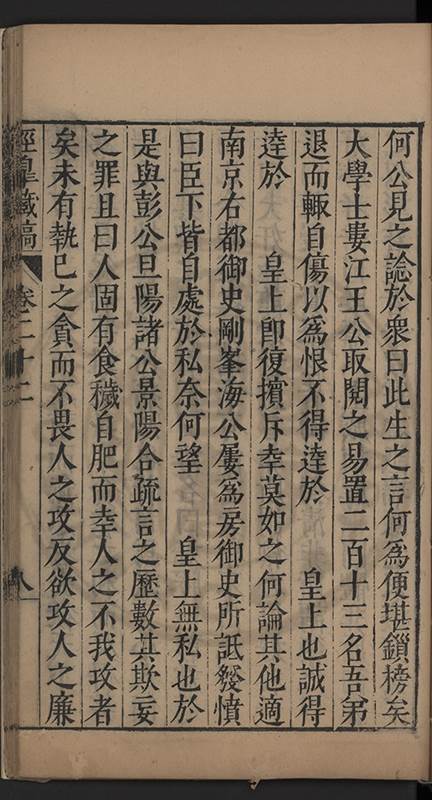 何公見之諗於衆曰此生之言何爲便堪鎖榜矣
大學士婁江王公取閱之易置二百十三名吾弟
退而輙自傷以爲恨不得逹於　皇上也誠得
逹於　皇上即復擯斥幸莫如之何論其他適
南京右都御史剛峯海公屢爲房御史所詆發憤
曰臣下皆自處於私奈何望　皇上無私也於
是與彭公旦陽諸公景陽合疏言之歷數其欺妄
之罪且曰人固有食穢自肥而幸人之不我攻者
矣未有執已之貪而不畏人之攻反欲攻人之廉
涇臯藏稿
卷二十二
八